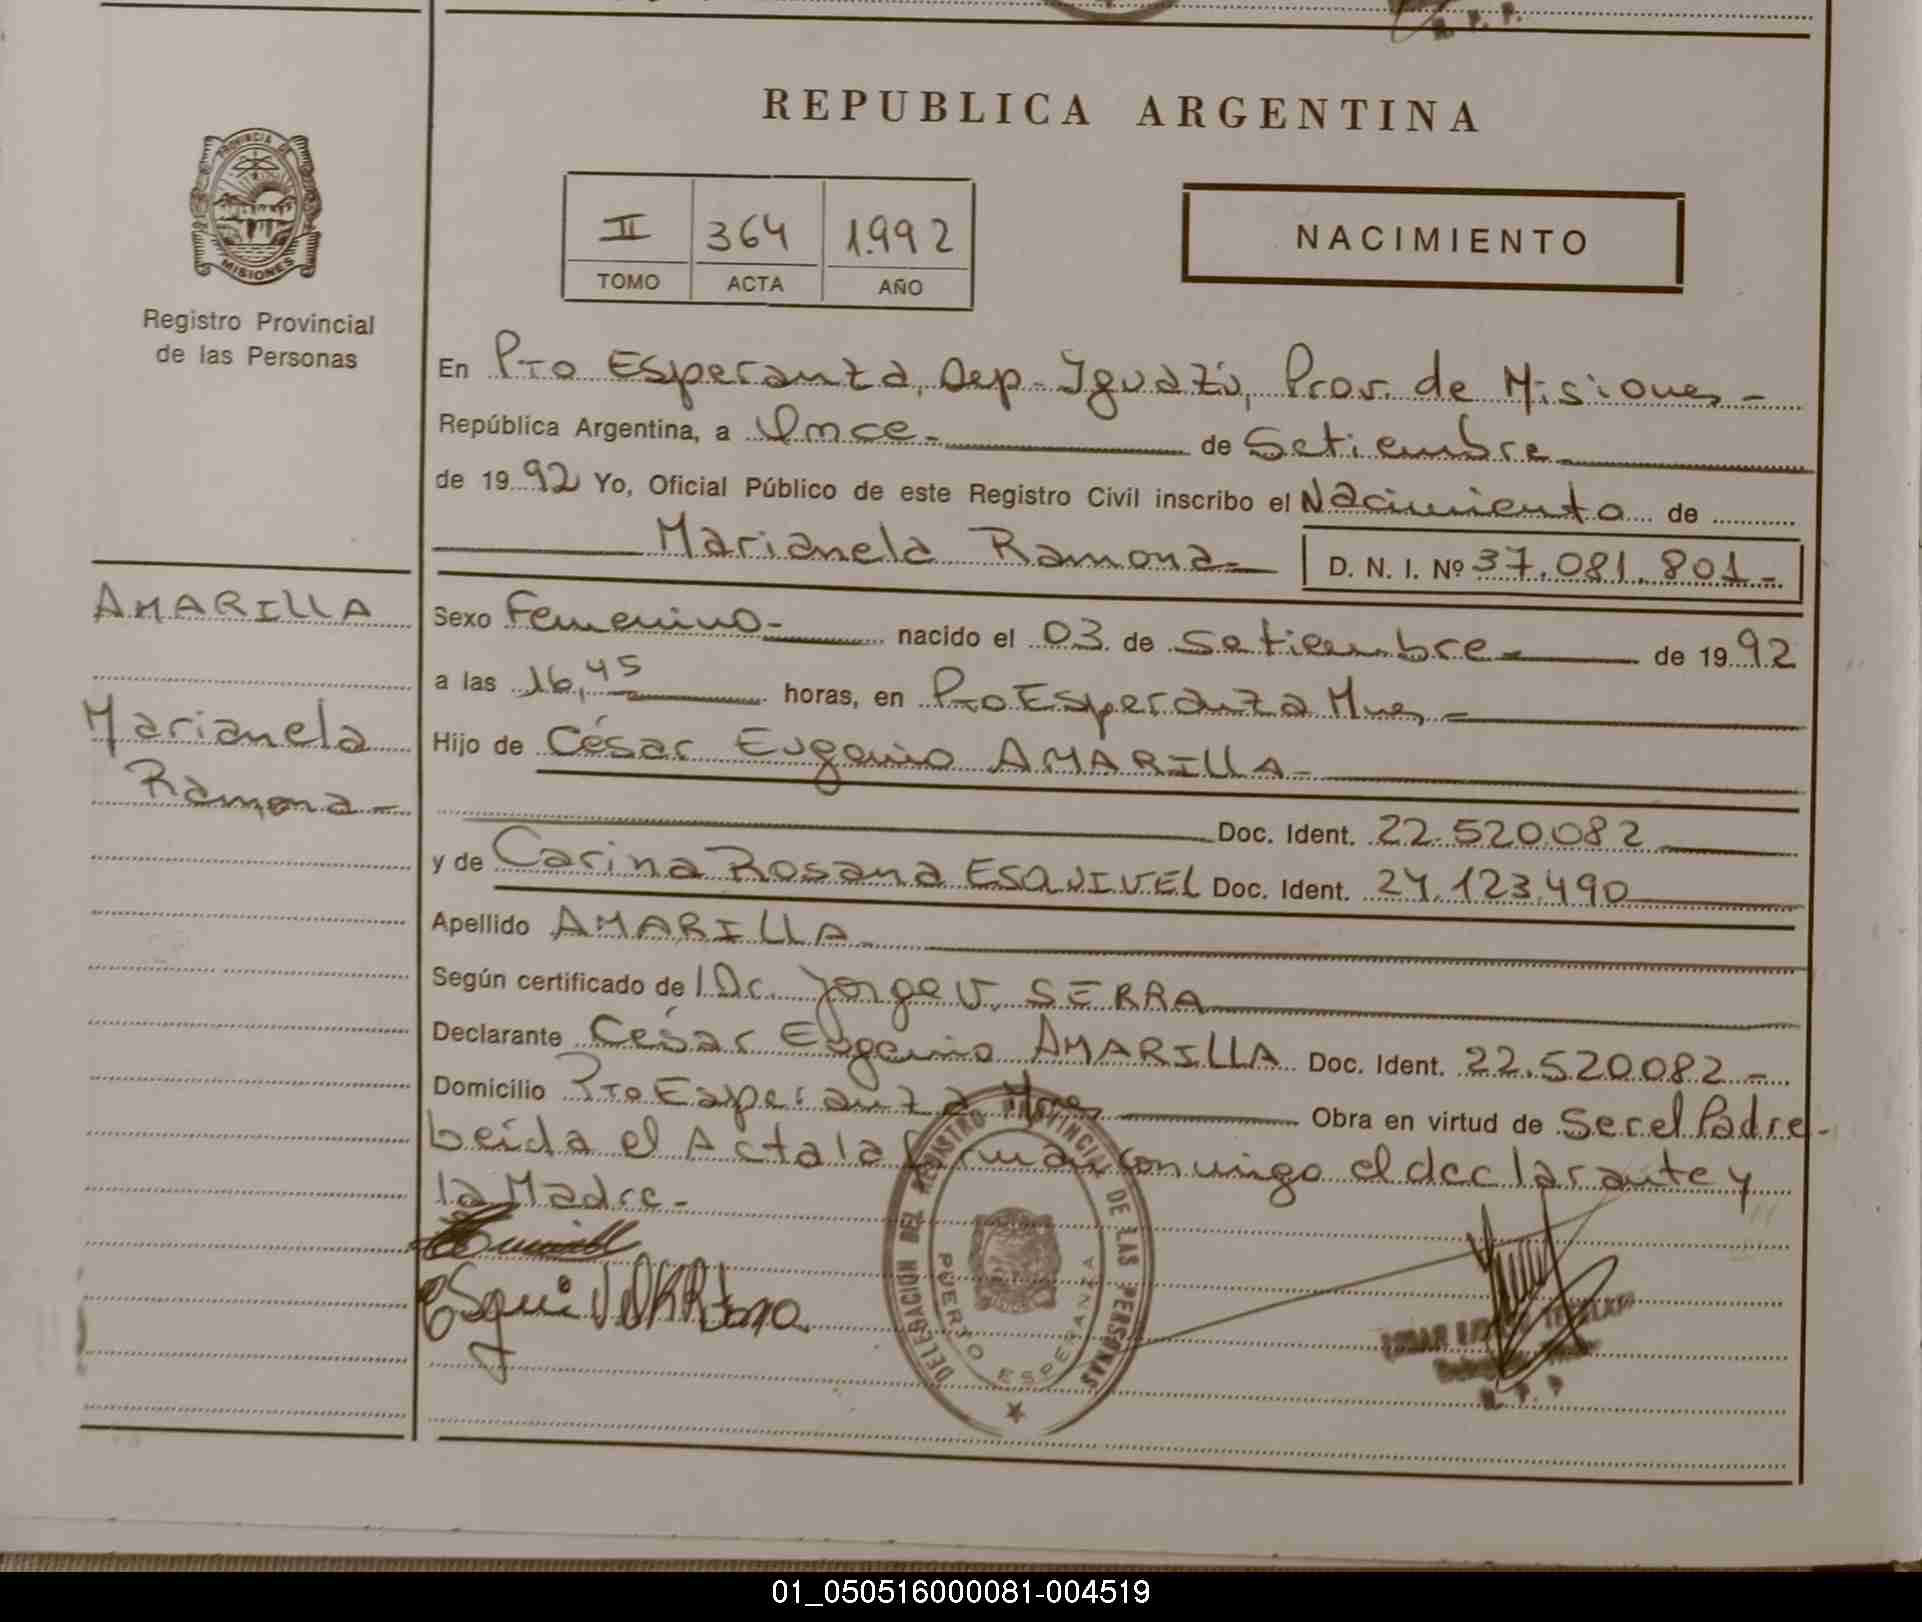 R. P. P.
REPUBLICA ARGENTINA
PROVINCIA DE
MISIONES
Registro Provincial
de las Personas
II 364 1.992
TOMO ACTA AÑO
NACIMIENTO
En Pto Esperanza, Dep. Iguazú, Prov. de Misiones -
República Argentina, a Once - de Setiembre -
de 1992 Yo, Oficial Público de este Registro Civil inscribo el Nacimiento de
Marianela Ramona - D. N. I. Nº 37.081.801 -
AMARILLA
Marianela
Ramona -
Sexo Femenino - nacido el 03 de Setiembre - de 1992
a las 16,45 horas, en Pto Esperanza Mnes -
Hijo de César Eugenio AMARILLA -
Doc. Ident. 22.520.082
y de Carina Rosana ESQUIVEL Doc. Ident. 24.123.490
Apellido AMARILLA
Según certificado de Dr. Jorge V. SERRA
Declarante César Eugenio AMARILLA Doc. Ident. 22.520.082 -
Domicilio Pto Esperanza Mnes Obra en virtud de Ser el Padre -
Leída el Acta la firman conmigo el declarante y
la Madre -
Esquivel
DELEGACION DEL REGISTRO PROVINCIAL DE LAS PERSONAS
PUERTO ESPERANZA
R. P. P
01_050516000081-004519